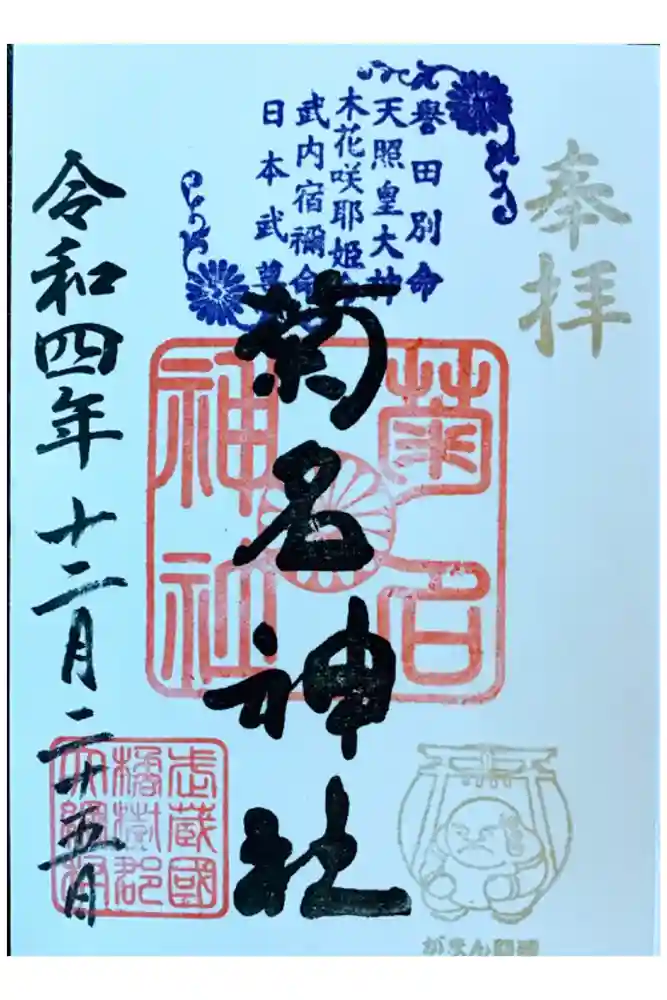 奉拝
譽田別命
天照皇大神
木花咲耶姫命
武内宿禰命
日本武尊
菊名神社
菊名
神社
令和四年十二月二十五日
武蔵國
橘樹郡
がまん